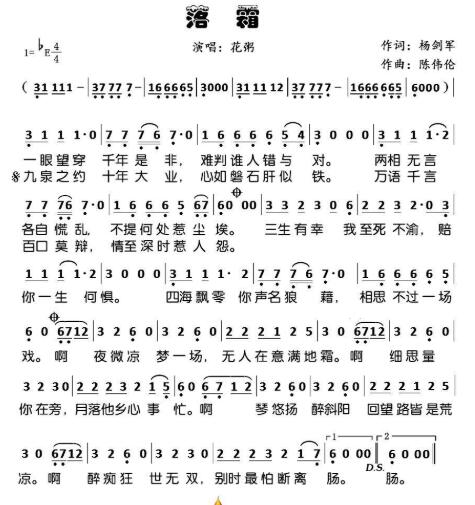 落 霜
1=♭E 4/4
演唱：花粥
作词：杨剑军
作曲：陈伟伦
( 31 111 - | 37 777 - | 16 6665 | 3000 | 31 11 12 | 37 777 - | 16 66665 | 6000 )
3 1 1 1·0 | 7 7 76 7·0 | 1 6 6 6 6 5 4 | 3 0 0 0 | 3 1 1 1·2 |
一眼望穿 千年是 非，难判谁人错与 对。 两相无言
※九泉之约 十年大 业，心如磐石肝似 铁。 万语千言
7 7 76 7·0 | 1 6 6 6 6 5 67 | 6 0 00 | 3 1 1 1·2 | 3 7 7 7 6 7 |
各自慌乱，不提何处惹尘埃。 三生有幸 我至死不渝，赔
百口莫辩，情至深时惹人 怨。
1 1 1 1·2 | 3 0 0 0 | 3 1 1 1·2 | 7 7 7 7 6 7·0 | 1 6 6 6 6 5 |
你一生 何惧。 四海飘零 你声名狼 藉，相思不过一场
6 0 6712 | 3 2 6 0 | 3 2 1 0 | 2 2 2 2 3 2 1 | 3 0 6712 | 3 2 6 0 |
戏。啊 夜微凉 梦一场，无人在意满地霜。啊 细思量
3 2 30 | 2 2 2 3 2 1 5 | 6 0 6 7 12 | 3 2 6 0 | 3 2 1 0 | 2 2 2 2 3 2 1 |
你在旁，月落他乡心事 忙。啊 琴悠扬 醉斜阳 回望路皆是荒
3 0 6712 | 3 2 6 0 | 3 2 3 0 | 2 2 2 3 2 1 7 | 6 0 00 :| 6 0 00 ‖
凉。啊 醉痴狂 世无双，别时最怕断离 肠。 肠。
1 2
D.S.